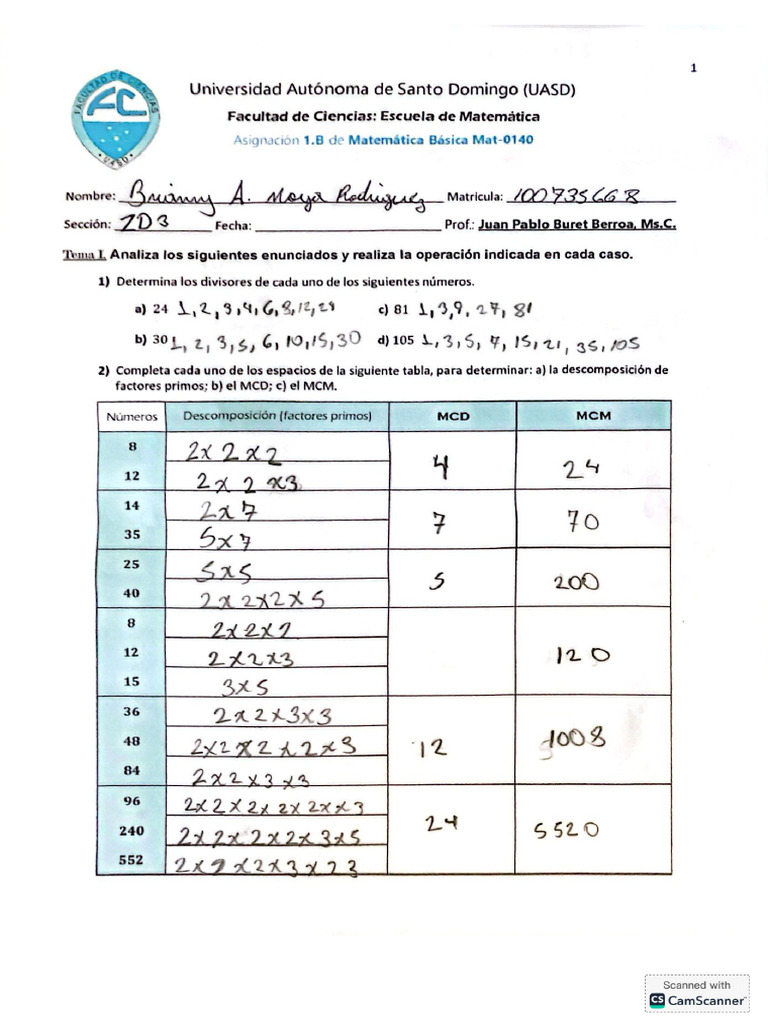 1
FACULTAD DE CIENCIAS
FC
UASD
Universidad Autónoma de Santo Domingo (UASD)
Facultad de Ciencias: Escuela de Matemática
Asignación 1.B de Matemática Básica Mat-0140
Nombre: Brianny A. Moya Rodriguez Matricula: 100735668
Sección: ZD3 Fecha: Prof.: Juan Pablo Buret Berroa, Ms.C.
Tema I. Analiza los siguientes enunciados y realiza la operación indicada en cada caso.
1) Determina los divisores de cada uno de los siguientes números.
a) 24 1,2,3,4,6,8,12,24 c) 81 1,3,9,27,81
b) 30 1,2,3,5,6,10,15,30 d) 105 1,3,5,7,15,21,35,105
2) Completa cada uno de los espacios de la siguiente tabla, para determinar: a) la descomposición de
factores primos; b) el MCD; c) el MCM.
Números Descomposición (factores primos) MCD MCM
8 2x2x2
4 24
12 2x2x3
14 2x7
7 70
35 5x7
25 5x5
5 200
40 2x2x2x5
8 2x2x2
12 2x2x3 120
15 3x5
36 2x2x3x3
48 2x2x2x2x3 12 1008
84 2x2x3x3
96 2x2x2x2x2xx3
240 2x2x2x2x3x5 24 5520
552 2x2x2x3x23
Scanned with
CS CamScanner